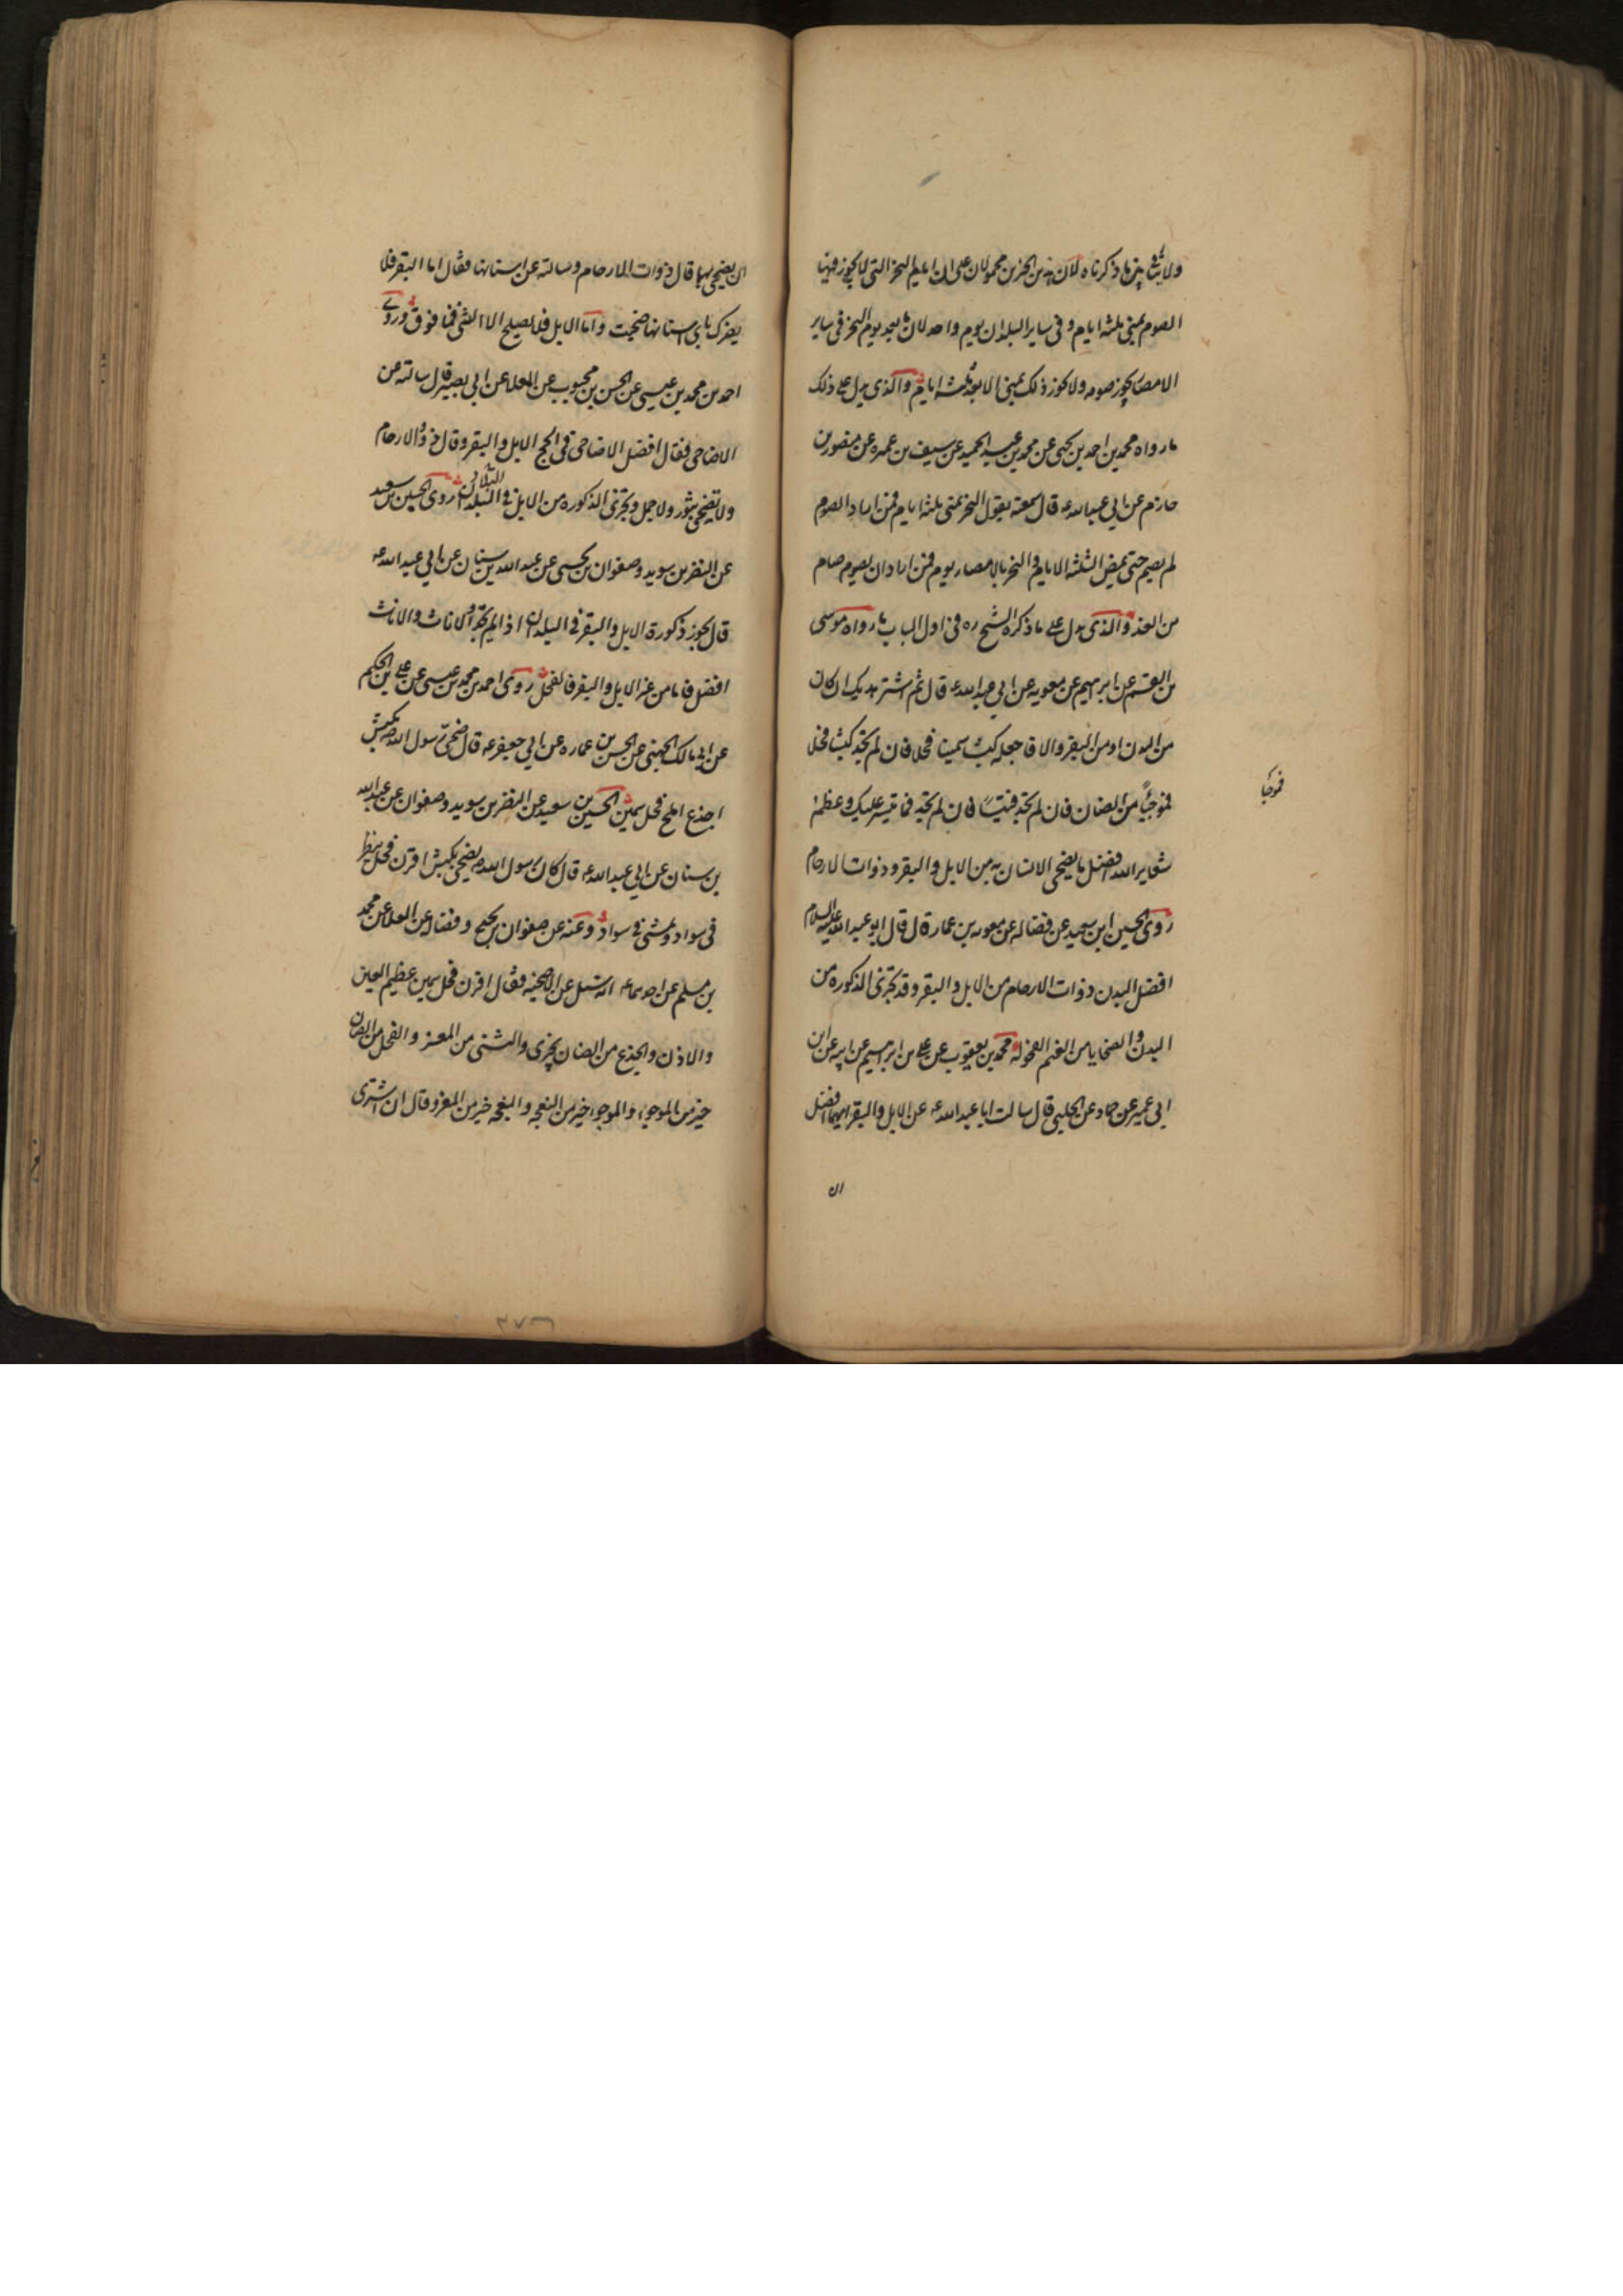 ولا ينافي ما ذكرناه لان هذين الخبرين محمولان على ان ايام النحر التي لا يجوز فيها
الصوم بمنى ثلثة ايام وفي ساير البلدان يوم واحد لان ما بعد يوم النحر في ساير
الامصار يجوز صومه ولا يجوز ذلك بمنى الا بعد ثلثة ايام والذي يدل على ذلك
ما رواه محمد بن احمد بن يحيى عن محمد بن عبد الحميد عن سيف بن عميره عن منصور بن
حازم عن ابي عبد الله ع قال سمعته يقول النحر بمنى ثلثة ايام فمن اراد الصوم
لم يصم حتى تمضي الثلثة الايام والنحر بالامصار يوم فمن اراد ان يصوم صام
من الغد والذي يدل على ما ذكره الشيخ ره في اول الباب ما رواه موسى
بن القسم عن ابرهيم عن معويه عن ابي عبد الله ع قال ثم اشتر هديك ان كان
من البدن او من البقر والا فاجعله كبشا سمينا فحلا فان لم تجد كبشا فحلا
فموجئا من الضان فان لم تجد فتيسا فان لم تجد فما تيسر عليك وعظم
شعاير الله افضل ما يضحي الانسان به من الابل والبقر وذوات الارحام
روى الحسين ابن سعيد عن فضاله عن معويه بن عمار قال قال ابو عبد الله عليه السلام
افضل البدن ذوات الارحام من الابل والبقر وقد تجزي الذكوره من
البدن والضحايا من الغنم الفحوله محمد بن يعقوب عن علي بن ابرهيم عن ابيه عن ابن
ابي عمير عن حماد عن الحلبي قال سالت ابا عبد الله ع عن الابل والبقر ايهما افضل
فموجئا
ان
ان يضحي بها قال ذوات الارحام وسالته عن اسنانها فقال اما البقر فلا
يضرك باي اسنانها ضحيت واما الابل فلا يصلح الا الثني فما فوق وروى
احمد بن محمد بن عيسى عن الحسن بن محبوب عن العلا عن ابي بصير قال سالته عن
الاضاحي فقال افضل الاضاحي في الحج الابل والبقر وقال ذو الارحام
ولا تضحي بثور ولا جمل وتجزي الذكوره من الابل في البلدان روى الحسين بن سعيد
عن النضر بن سويد وصفوان بن يحيى عن عبد الله بن سنان عن ابي عبد الله ع
قال يجوز ذكورة الابل والبقر في البلدان اذا لم تجدوا الاناث والاناث
افضل فاما من غير الابل والبقر فالفحل روى احمد بن محمد بن عيسى عن علي بن الحكم
عن ابي مالك الجهني عن الحسن بن عماره عن ابي جعفر ع قال ضحى رسول الله ص بكبش
اجذع املح فحل سمين الحسين بن سعيد عن النضر بن سويد وصفوان عن عبد الله
بن سنان عن ابي عبد الله ع قال كان رسول الله ص يضحي بكبش اقرن فحل ينظر
في سواد ويمشي في سواد وعنه عن صفوان بن يحيى وفضاله عن العلا عن محمد
بن مسلم عن احدهما ع انه سئل عن الاضحيه فقال اقرن فحل سمين عظيم العين
والاذن والجذع من الضان يجزي والثني من المعز والفحل من الضان
خير من الموجوء والموجوء خير من النعجه والنعجه خير من المعز وقال ان اشترى